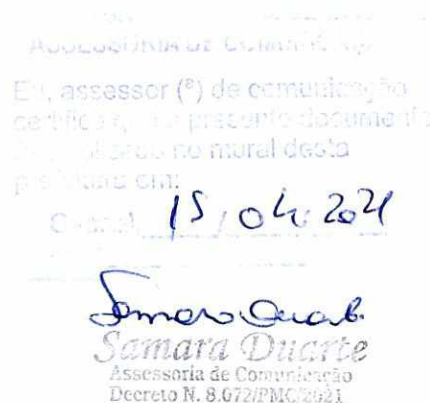 ASSESSORIA DE COMUNICAÇÃO
Eu, assessor (ª) de comunicação
certifico que o presente documento
publicado no mural desta
prefeitura em:
15 / 04 / 2021
Samara Duarte
Samara Duarte
Assessoria de Comunicação
Decreto N. 8.072/PMC/2021